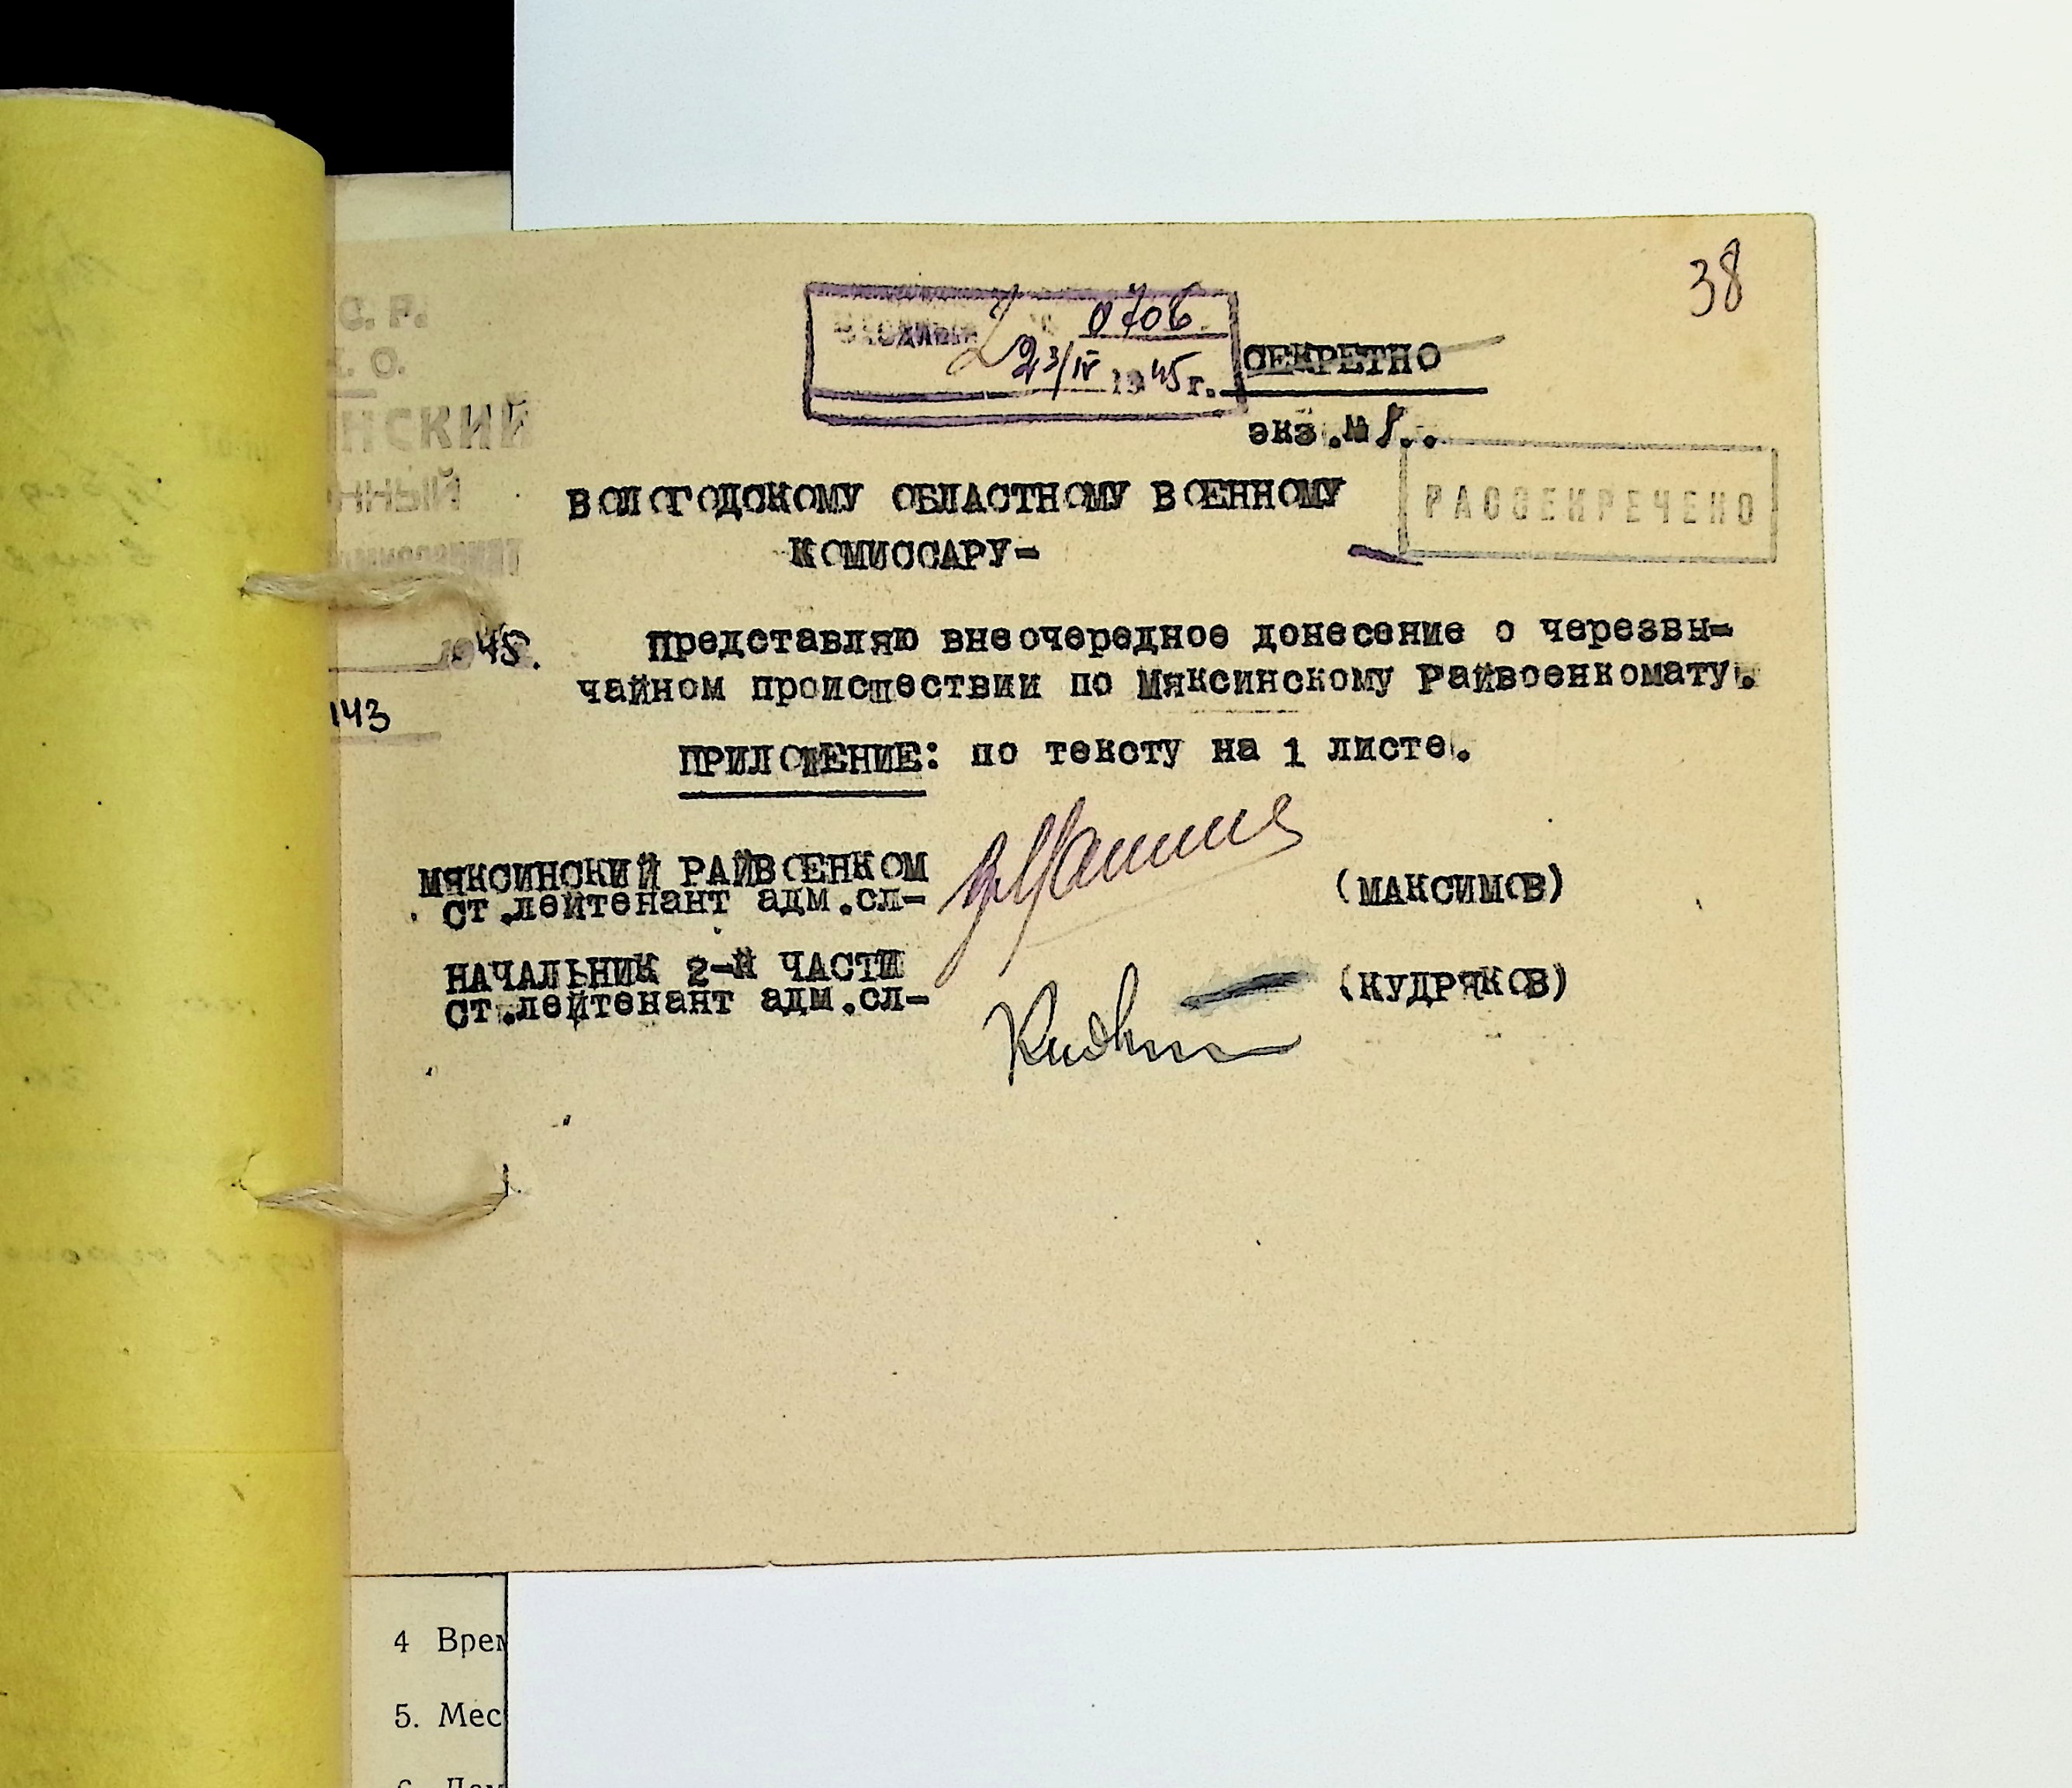 38
Входящий № 0706
23/IV 1945 г.
СЕКРЕТНО
экз.№ 1.
С. Р.
К. О.
НСКИЙ
ННЫЙ
1945.
143
РАССЕКРЕЧЕНО
ВОЛОГОДСКОМУ ОБЛАСТНОМУ ВОЕННОМУ
КОМИССАРУ-
Представляю внеочередное донесение о черезвы-
чайном происшествии по Мяксинскому Райвоенкомату.
ПРИЛОЖЕНИЕ: по тексту на 1 листе.
МЯКСИНСКИЙ РАЙВОЕНКОМ
ст.лейтенант адм.сл- (МАКСИМОВ)
НАЧАЛЬНИК 2-Й ЧАСТИ
ст.лейтенант адм.сл- (КУДРЯКОВ)
4 Врем
5. Мес